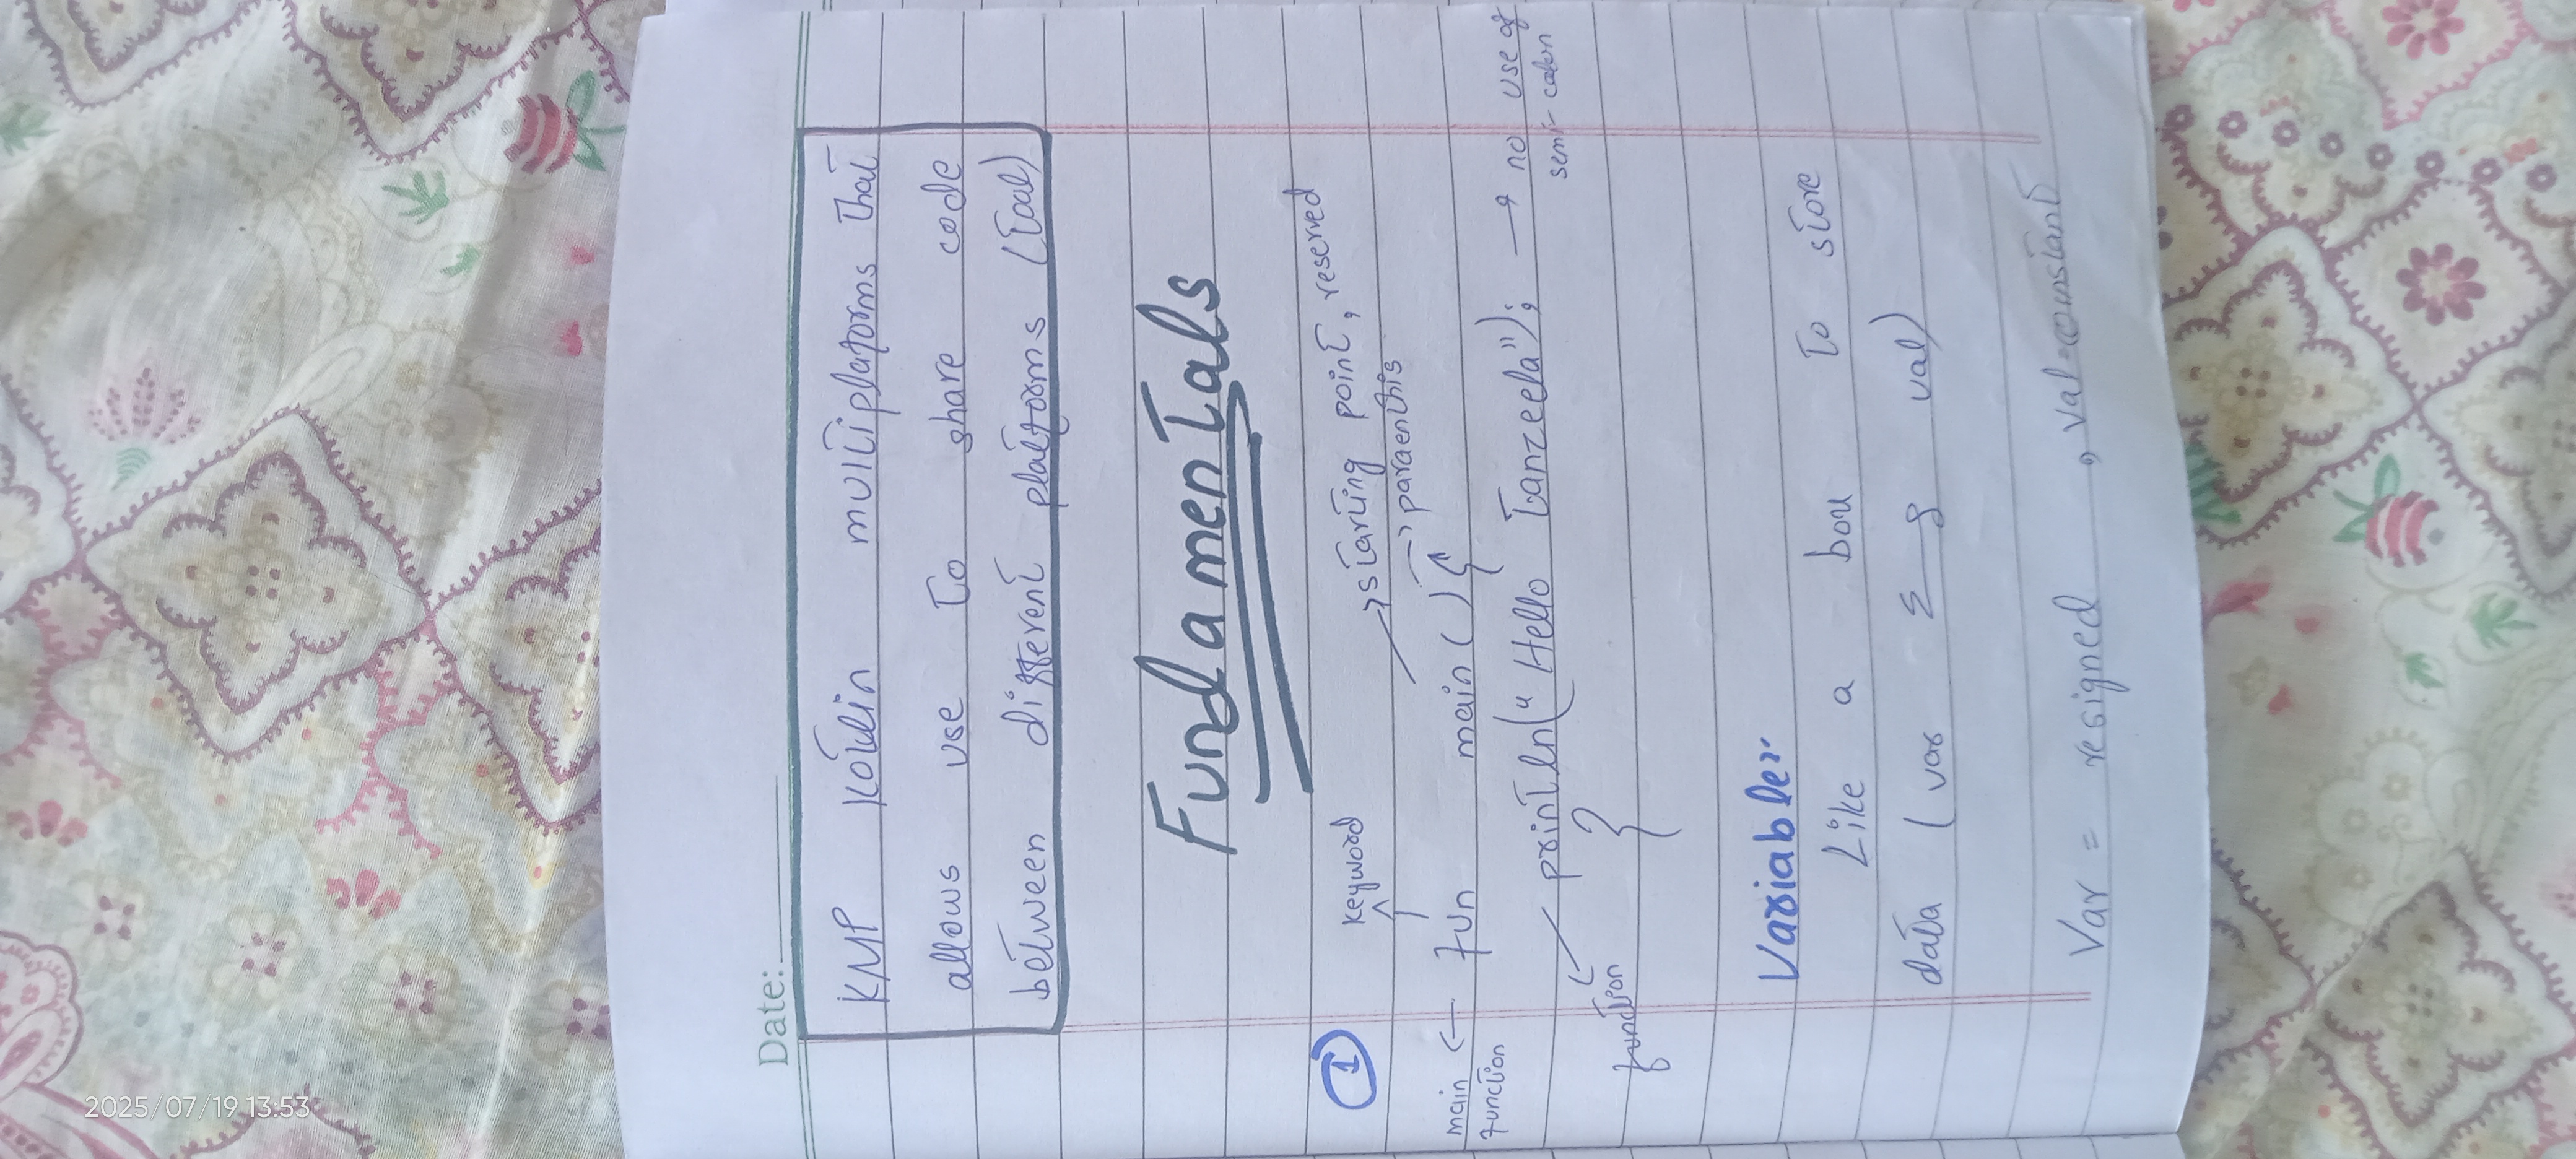 2025/07/19 13:53
Date:
KMP Kotlin multiplaforms that
allows use to share code
between different platforms (Toal)
Fundamentals
1
keyword
starting point, reserved
paraenthis
main function
fun main() {
println("Hello Tanzeela"); → no use of
semi-colon
function
}
Variable:-
Like a box to store
data (var & val)
Var = resigned , Val=constant